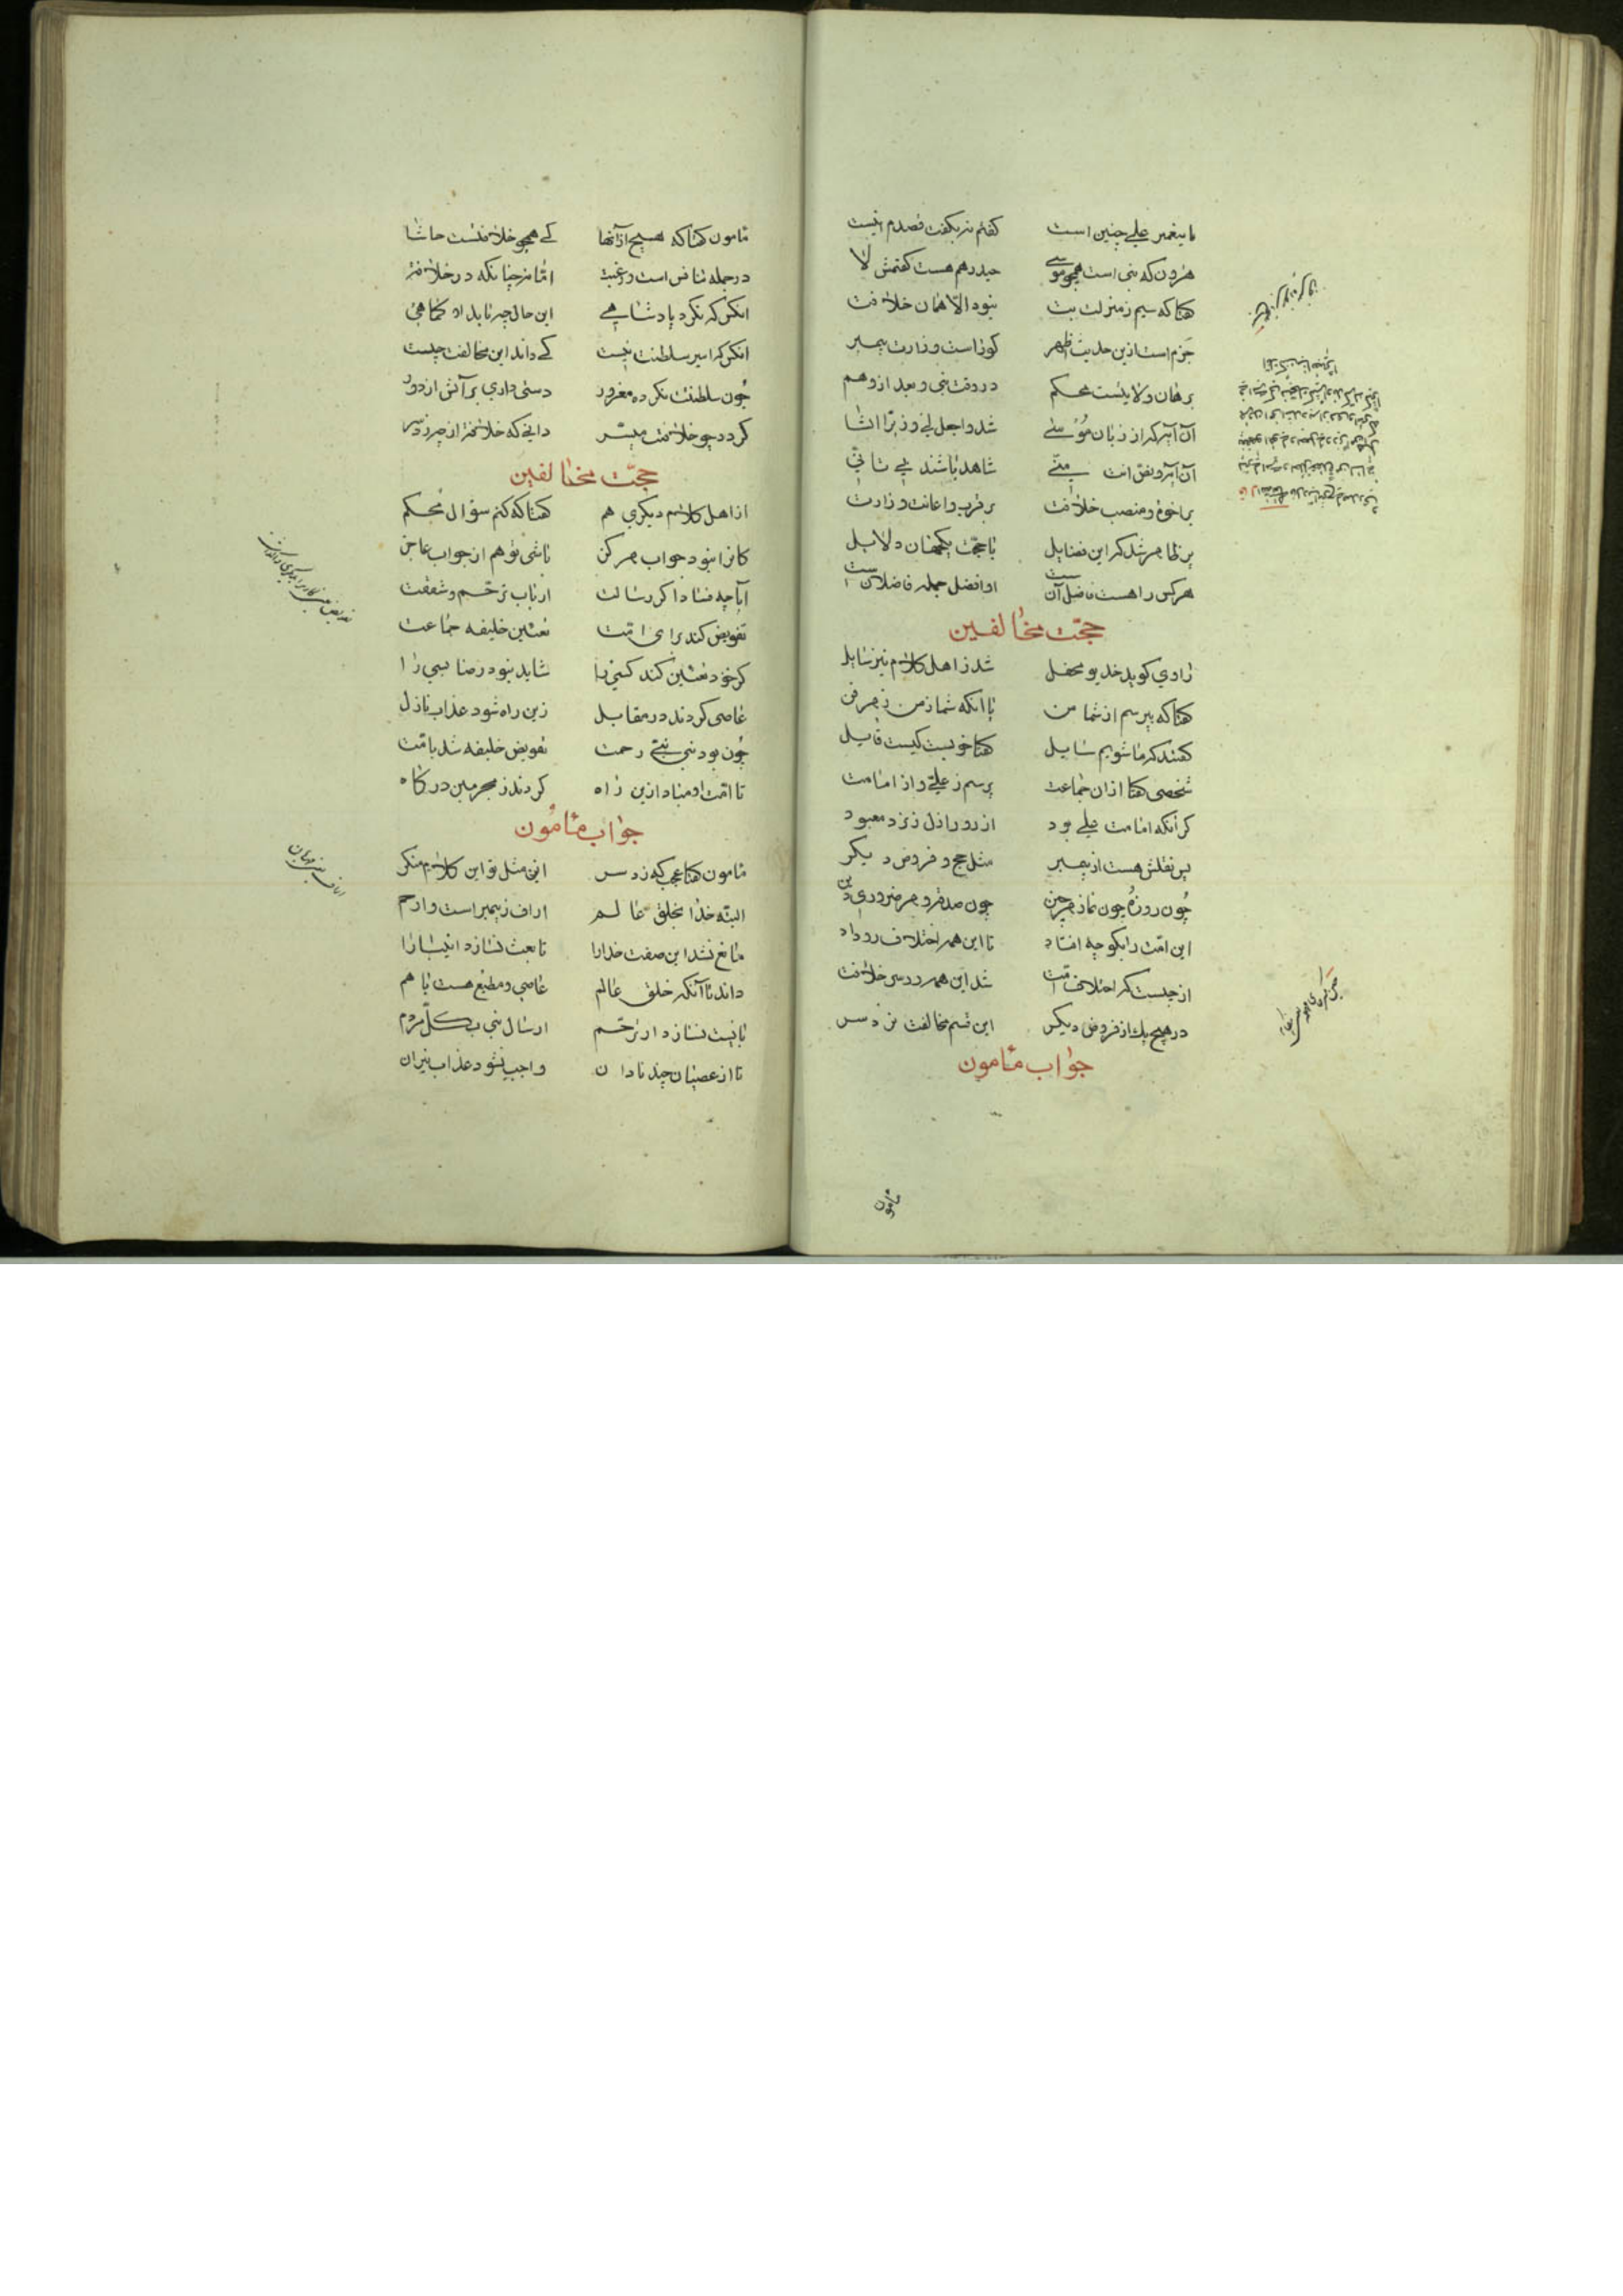 با پیغمبر علی چنین است گفتم نه بگفت قصدم اینست
هرون که نبی است همچو موسی حیدر هم هست گفتمش لا
گفتا که سیم ز منزلت بیت نبود الا همان خلافت
جزم است ازین حدیث اظهر کو راست وزارت پیمبر
برهان ولایتست محکم در وقت نبی و بعد ازو هم
آن آیه که از زبان موسی شد واجعل لی وزیرا انشا
آن آیه و نص انت منّی شاهد باشند بی تانّی
بر اخوة و منصب خلافت بر قرب و اعانت و وزارت
پس ظاهر شد که این فضایل با حجت بیکران دلایل
هر کس را هست فاضل آن است او افضل جمله فاضلان است
حجّت مخالفین
زادی گوید خدیو محفل شد ز اهل کلام نیز سایل
گفتا که بپرسم از شما من با آنکه شما ز من بهر فن
گفتند که ما شویم سایل گفتا خوبست کیست قایل
شخصی گفتا ازان جماعت پرسم ز علی و از امامت
گر آنکه امامت علی بود از روز ازل ز نزد معبود
پس نقلش هست از پیمبر مثل حج و فروض دیگر
چون روزه چون نماز هر حین چون صدقه و هر ضروری دین
این امت را بگو چه افتاد تا این همه اختلاف رو داد
از چیست که اختلاف امت شد این همه در سر خلافت
در هیچ یک از فروض دیگر این قسم مخالفت نزد سر
جواب مامون
مامون
مامون گفتا که هیچ از آنها کی همچو خلافتست حاشا
در جمله تنافس است و رغبت اما نه چنانکه در خلافت
آنکس که نکرد پادشاهی این حال چه یابد او کماهی
آنکس که اسیر سلطنت نیست کی داند این مخالفت چیست
چون سلطنت نکرده مغرور دستی داری بر آتش از دور
گردد چو خلافتت میسّر دانی که خلافت از چه زد سر
حجّت مخالفین
از اهل کلام دیگری هم گفتا که کنم سؤال محکم
کانرا نبود جواب هرگز باشی تو هم از جواب عاجز
آیا چه فتاد اگر رسالت از باب ترحّم و شفقت
تفویض کند برای امّت تعیین خلیفه جماعت
گر خود تعیین کند کسی را شاید نبود رضا بسی را
عاصی گردند در مقابل زین راه شود عذاب نازل
چون بود نبی نبیّ رحمت تفویض خلیفه شد بامّت
تا امّت او مبادا زین راه گردند ز مجرمین درگاه
جواب مامُون
مامون گفتا عجب که زد سر این مثل تو این کلام منکر
البتّه خدا بخلق عالم اراف ز پیمبر است و ارحم
مانع نشد این صفت خدا را تا بعث نسازد انبیا را
داند با آنکه خلق عالم عاصی و مطیع هست با هم
بایست نسازد از ترحّم ارسال نبی بکلّ مردم
تا از عصیان چند نادان واجب نشود عذاب نیران